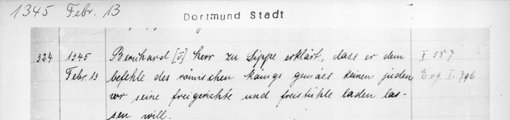 1345 Febr. 13
Dortmund Stadt
324 1345 Bernhard [?] herr zu Lippe erklärt, dass er dem I 587
Febr. 13 befehle des römischen königs gemäss keinen juden Erg I. 796
vor seine freigerichte und freistühle laden las-
sen will.